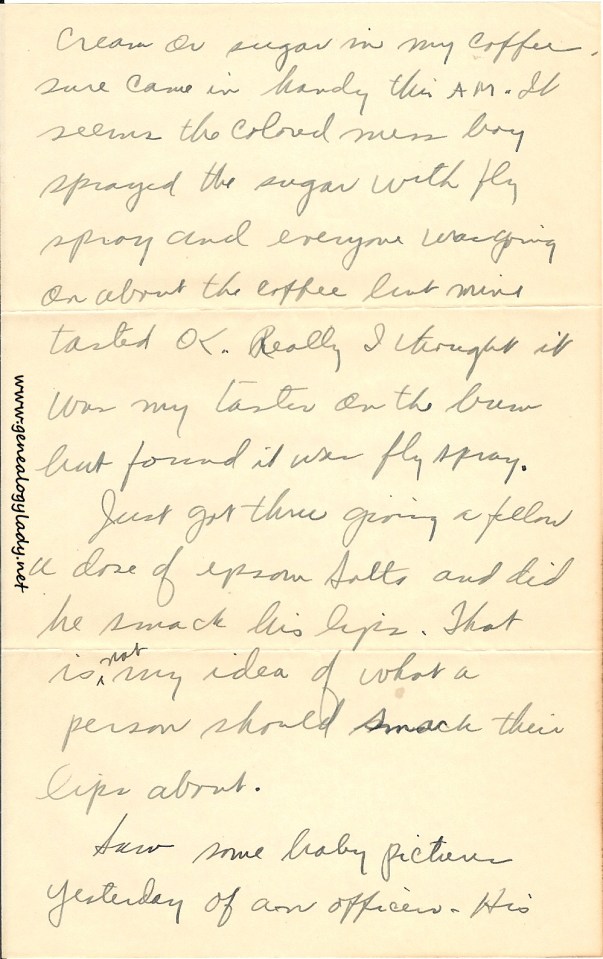 Cream or sugar in my coffee
sure came in handy this AM. It
seems the colored mess boy
sprayed the sugar with fly
spray and everyone was going
on about the coffee but mine
tasted OK. Really I thought it
was my taster on the bum
but found it was fly spray.
Just got thru giving a fellow
a dose of epsom salts and did
he smack his lips. That
is not my idea of what a
person should smack their
lips about.
Saw some baby pictures
yesterday of an officers. His
www.genealogylady.net